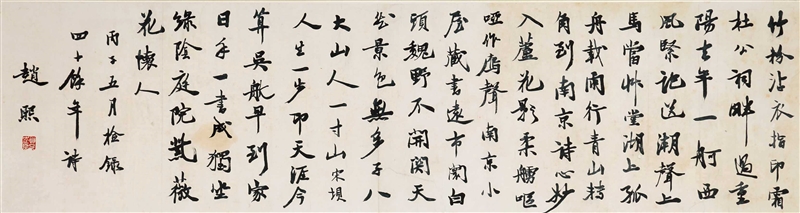 竹粉沾衣指印霜
杜公祠畔過重
陽去年一舸西
風緊記送潮聲上
馬當 草堂湖上孤
舟載雨行青山轉
角到南京詩心妙
入蘆花影柔艣嘔
啞作雁聲 南京小
屋藏書遠市闤白
頭魏野不開關天
然景色無多子八
大山人一寸山 宋壩
人生一步即天涯今
算吳早到家
日手一書成獨坐
綠陰庭院紫薇
花 懷人
丙子五月檢錄
四十餘年詩
趙熙